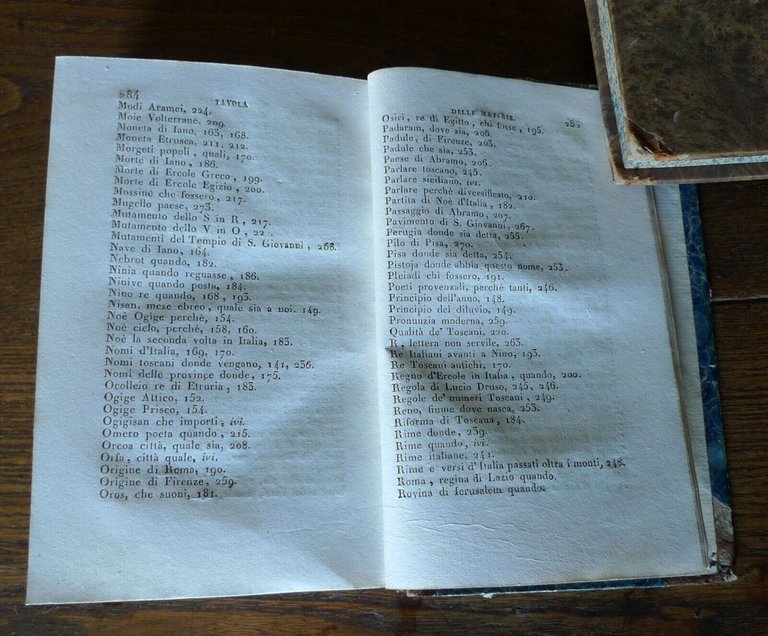 284
TAVOLA
Modi Aramei, 224.
Moie Volterrane, 209.
Moneta di Iano, 163, 168.
Moneta Etrusca, 211, 212.
Morgeti popoli, quali, 170.
Morte di Iano, 186.
Morte di Ercole Greco, 199.
Morte di Ercole Egizio, 200.
Mossino che fossero, 217.
Mugello paese, 273.
Mutamento dello S in R, 217.
Mutamento dello V in O, 22
Mutamenti del Tempio di S. Giovanni, 268.
Nave di Iano, 164.
Nebrot quando, 182.
Ninia quando regnasse, 186.
Ninive quando posta, 184.
Nino re quando, 168, 193.
Nisan, mese ebreo, quale sia a noi. 149.
Noè Ogige perchè, 154.
Noè cielo, perchè, 158, 160.
Noè la seconda volta in Italia, 183.
Nomi d'Italia, 169, 170.
Nomi toscani donde vengano, 141, 236.
Nomi delle province donde, 175.
Ocolleio re di Etruria, 183.
Ogige Attico, 152.
Ogige Prisco, 154.
Ogigisan che importi, ivi.
Omero poeta quando, 215.
Orcoa città, quale sia, 208.
Orfa, città quale, ivi.
Origine di Roma, 190.
Origine di Firenze, 259.
Oros, che suoni, 181.
DELLE MATERIE.
285
Osiri, re di Egitto, chi fosse, 195.
Padaram, dove sia, 206.
Padule, di Firenze, 203.
Padule che sia, 253.
Paese di Abramo, 206.
Parlare toscano, 245.
Parlare siciliano, ivi.
Parlare perchè diversificato, 210.
Partita di Noè d'Italia, 182.
Passaggio di Abramo, 207.
Pavimento di S. Giovanni, 267.
Perugia donde sia detta, 255.
Pilo di Pisa, 270.
Pisa donde sia detta, 254.
Pistoja donde abbia questo nome, 253.
Pleiadi chi fossero, 191.
Poeti provenzali, perchè tanti, 246.
Principio dell'anno, 148.
Principio del diluvio, 149.
Pronunzia moderna, 259.
Qualità de' Toscani, 220.
R, lettera non servile, 263.
Re Italiani avanti a Nino, 193.
Re Toscani antichi, 170.
Regno d'Ercole in Italia, quando, 200.
Regola di Lucio Druso, 245, 246.
Regole de' numeri Toscani, 249.
Reno, fiume dove nasca, 253.
Riforma di Toscana, 184.
Rime donde, 239.
Rime quando, ivi.
Rime italiane, 241.
Rime e versi d'Italia passati oltra i monti, 248.
Roma, regina di Lazio quando.
Rovina di Ierusalem quando.